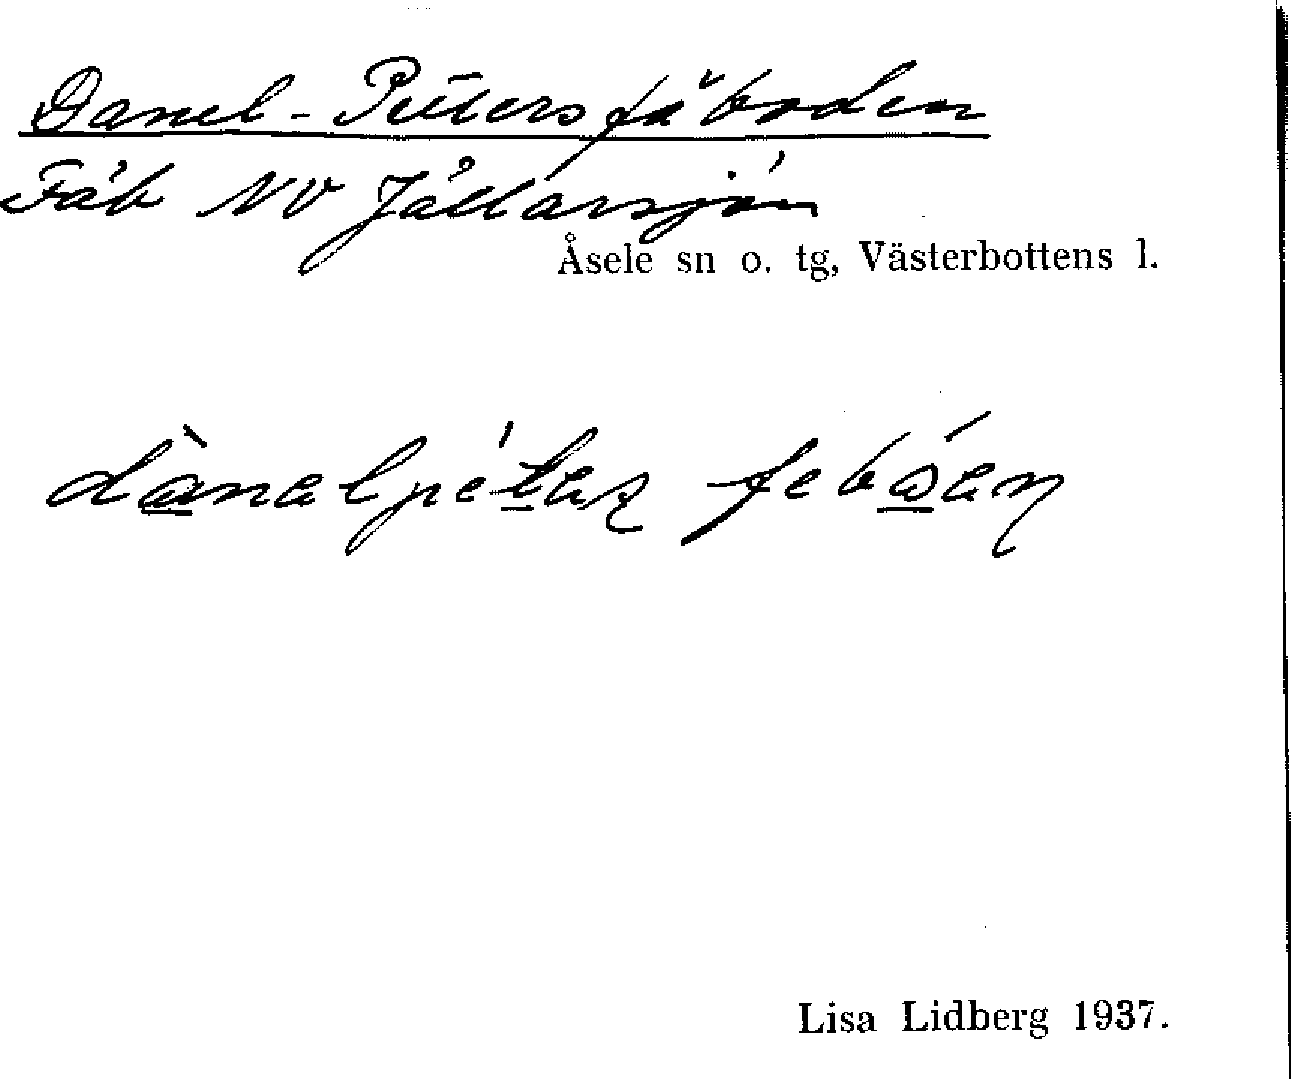 Danel-Petersfäboden
Fäb NV Jällarsjön
Åsele sn o. tg, Västerbottens l.
dànalpétaʂ febóan
Lisa Lidberg 1937.